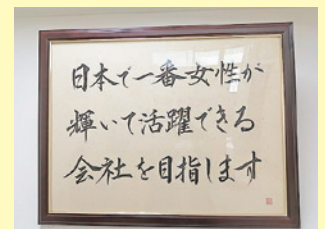 日本で一番女性が
輝いて活躍できる
会社を目指します